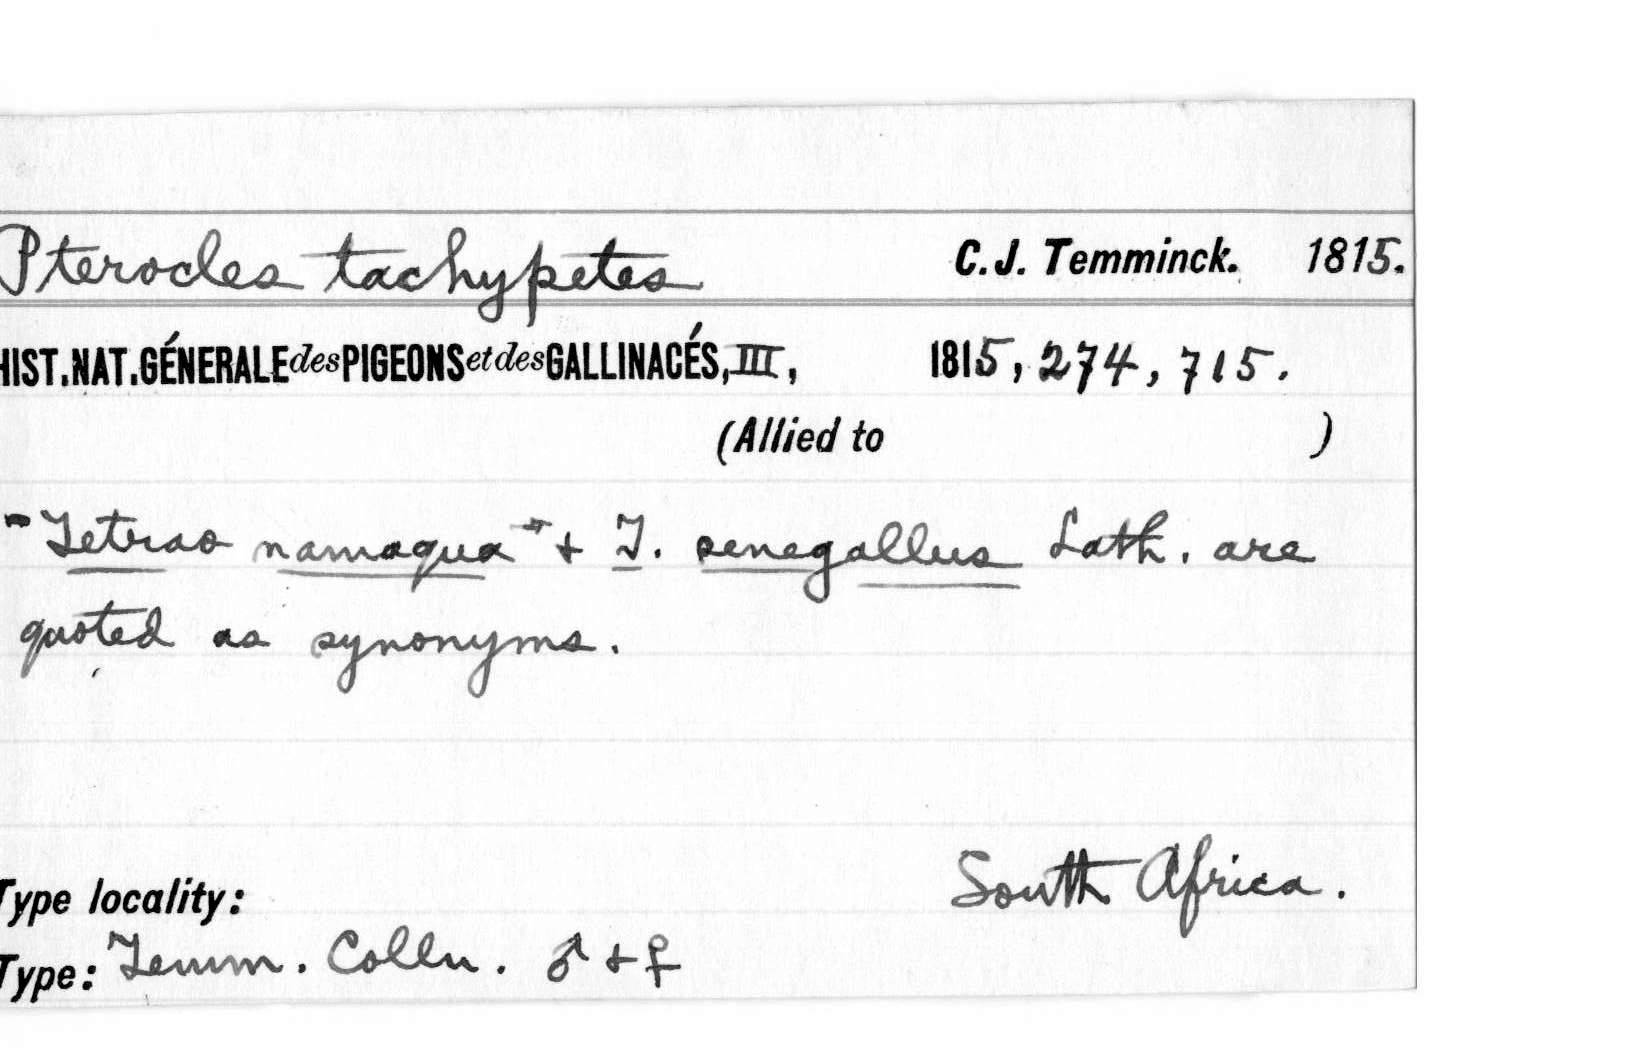 Pterocles tachypetes C.J. Temminck. 1815.
HIST.NAT.GÉNERALE des PIGEONS et des GALLINACÉS, III, 1815, 274, 715.
(Allied to )
"Tetrao namaqua" + T. senegallus Lath. are
quoted as synonyms.
South Africa.
Type locality:
Type: Temm. Colln. ♂ + ♀